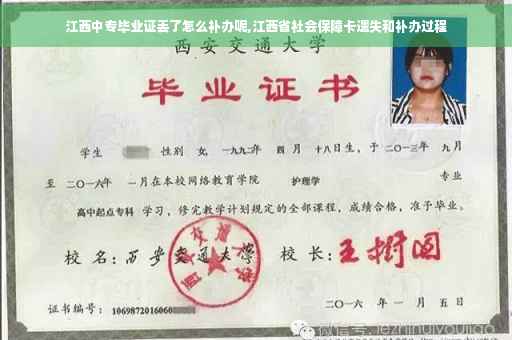 江西中专毕业证丢了怎么补办呢,江西省社会保障卡遗失和补办过程
西安交通大学
毕业证书
学生 性别 女, 一九九二年 四月 十八日生, 于 二〇一三年 九月
至 二〇一六年 一月在本校网络教育学院 护理学 专业
高中起点专科 学习, 修完教学计划规定的全部课程, 成绩合格, 准予毕业。
校名: 西安交通大学 校长: 王树国
西安交通大学
证书编号: 1069872016060
二〇一六年 一月 五日
微信号: jiezhihuiyoujiao